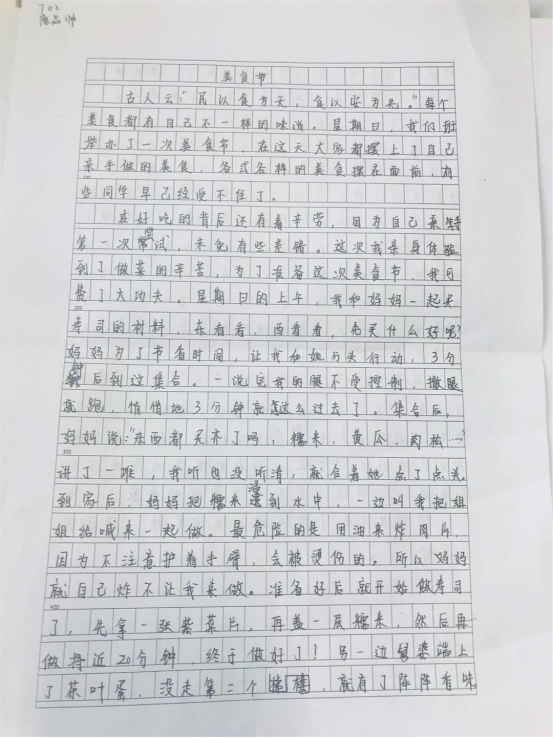 702
美食节
古人云:“民以食为天，食以安为先。”每个
美食都有自己不一样的味道。星期日，我们班
举办了一次美食节，在这天大家都摆上了自己
亲手做的美食，各式各样的美食摆在面前，有
些同学早已经受不住了。
在好吃的背后还有着辛劳，因为自己
第一次尝试，未免有些差错。这次我亲身体验
到了做菜的辛苦，为了准备这次美食节，我可
费了大功夫。星期日的上午，我和妈妈一起买
寿司的材料，东看看，西看看，先买什么好呢?
妈妈为了节省时间，让我和她分头行动，3分
钟后到这集合。一说完我的腿不受控制，撒腿
就跑，悄悄地3分钟就怎么过去了。集合后，
妈妈说:“东西都买齐了吗，糯米、黄瓜、肉松……”
讲了一堆，我听也没听清，就合着她点了点头。
到家后，妈妈把糯米浸到水中，一边叫我把姐
姐给喊来一起做。最危险的是用油来炸肉片，
因为不注意护着手臂，会被烫伤的。所以妈妈
就自己炸不让我来做。准备好后就开始做寿司
了，先拿一张紫菜片，再盖一层糯米，然后再
做将近20分钟，终于做好了!另一边舅婆端上
了茶叶蛋，没走第二个楼，就有了阵阵香味